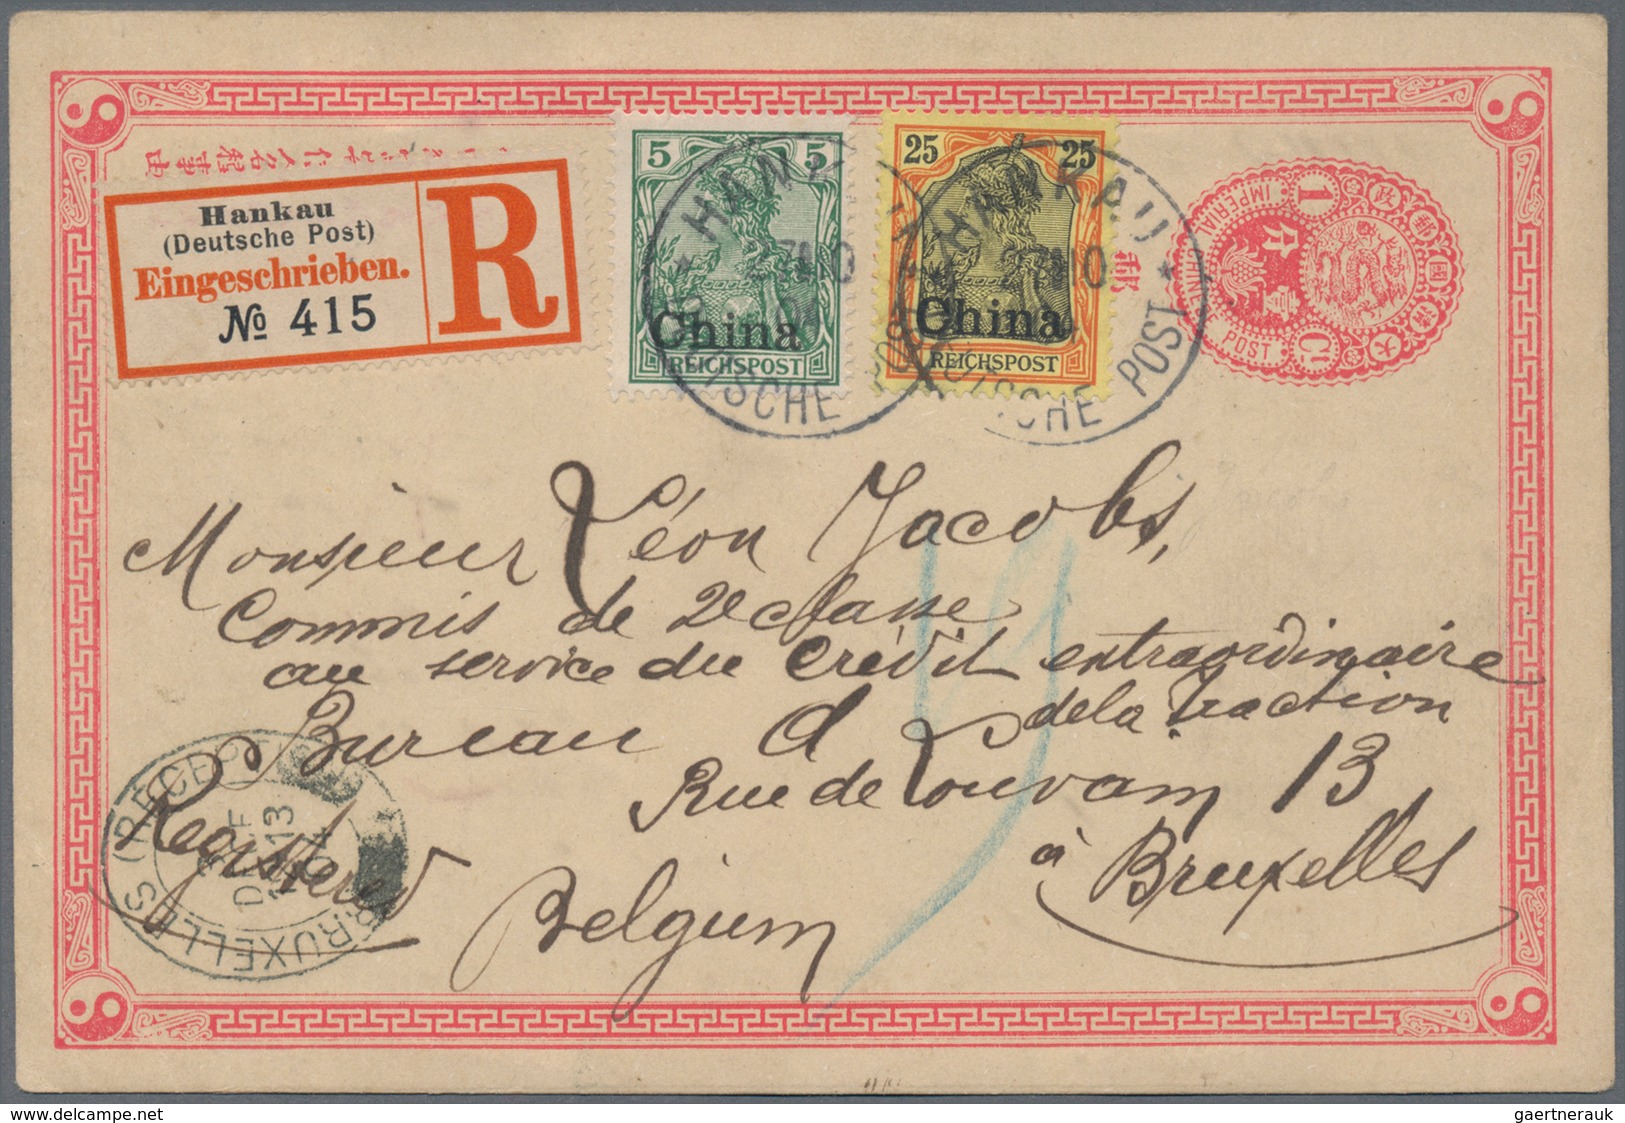 Hankau
(Deutsche Post)
Eingeschrieben.
№ 415
R
5 5
China
REICHSPOST
25 25
China
REICHSPOST
HANKAU
DEUTSCHE POST
大清國郵政
壹分
1 Ct
IMPERIAL CHINESE POST
郵
Monsieur Léon Jacobs,
Commis de 2e classe
au service du Crédit extraordinaire
Bureau d de la traction
Rue de Louvain 13
à Bruxelles
Belgium
Registered
BRUXELLES (RECD
13
delcampe.net
gaertnerauk